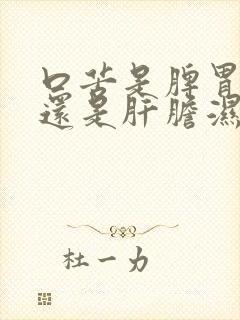 口苦是脾胃
還是肝膽濕
杜一力